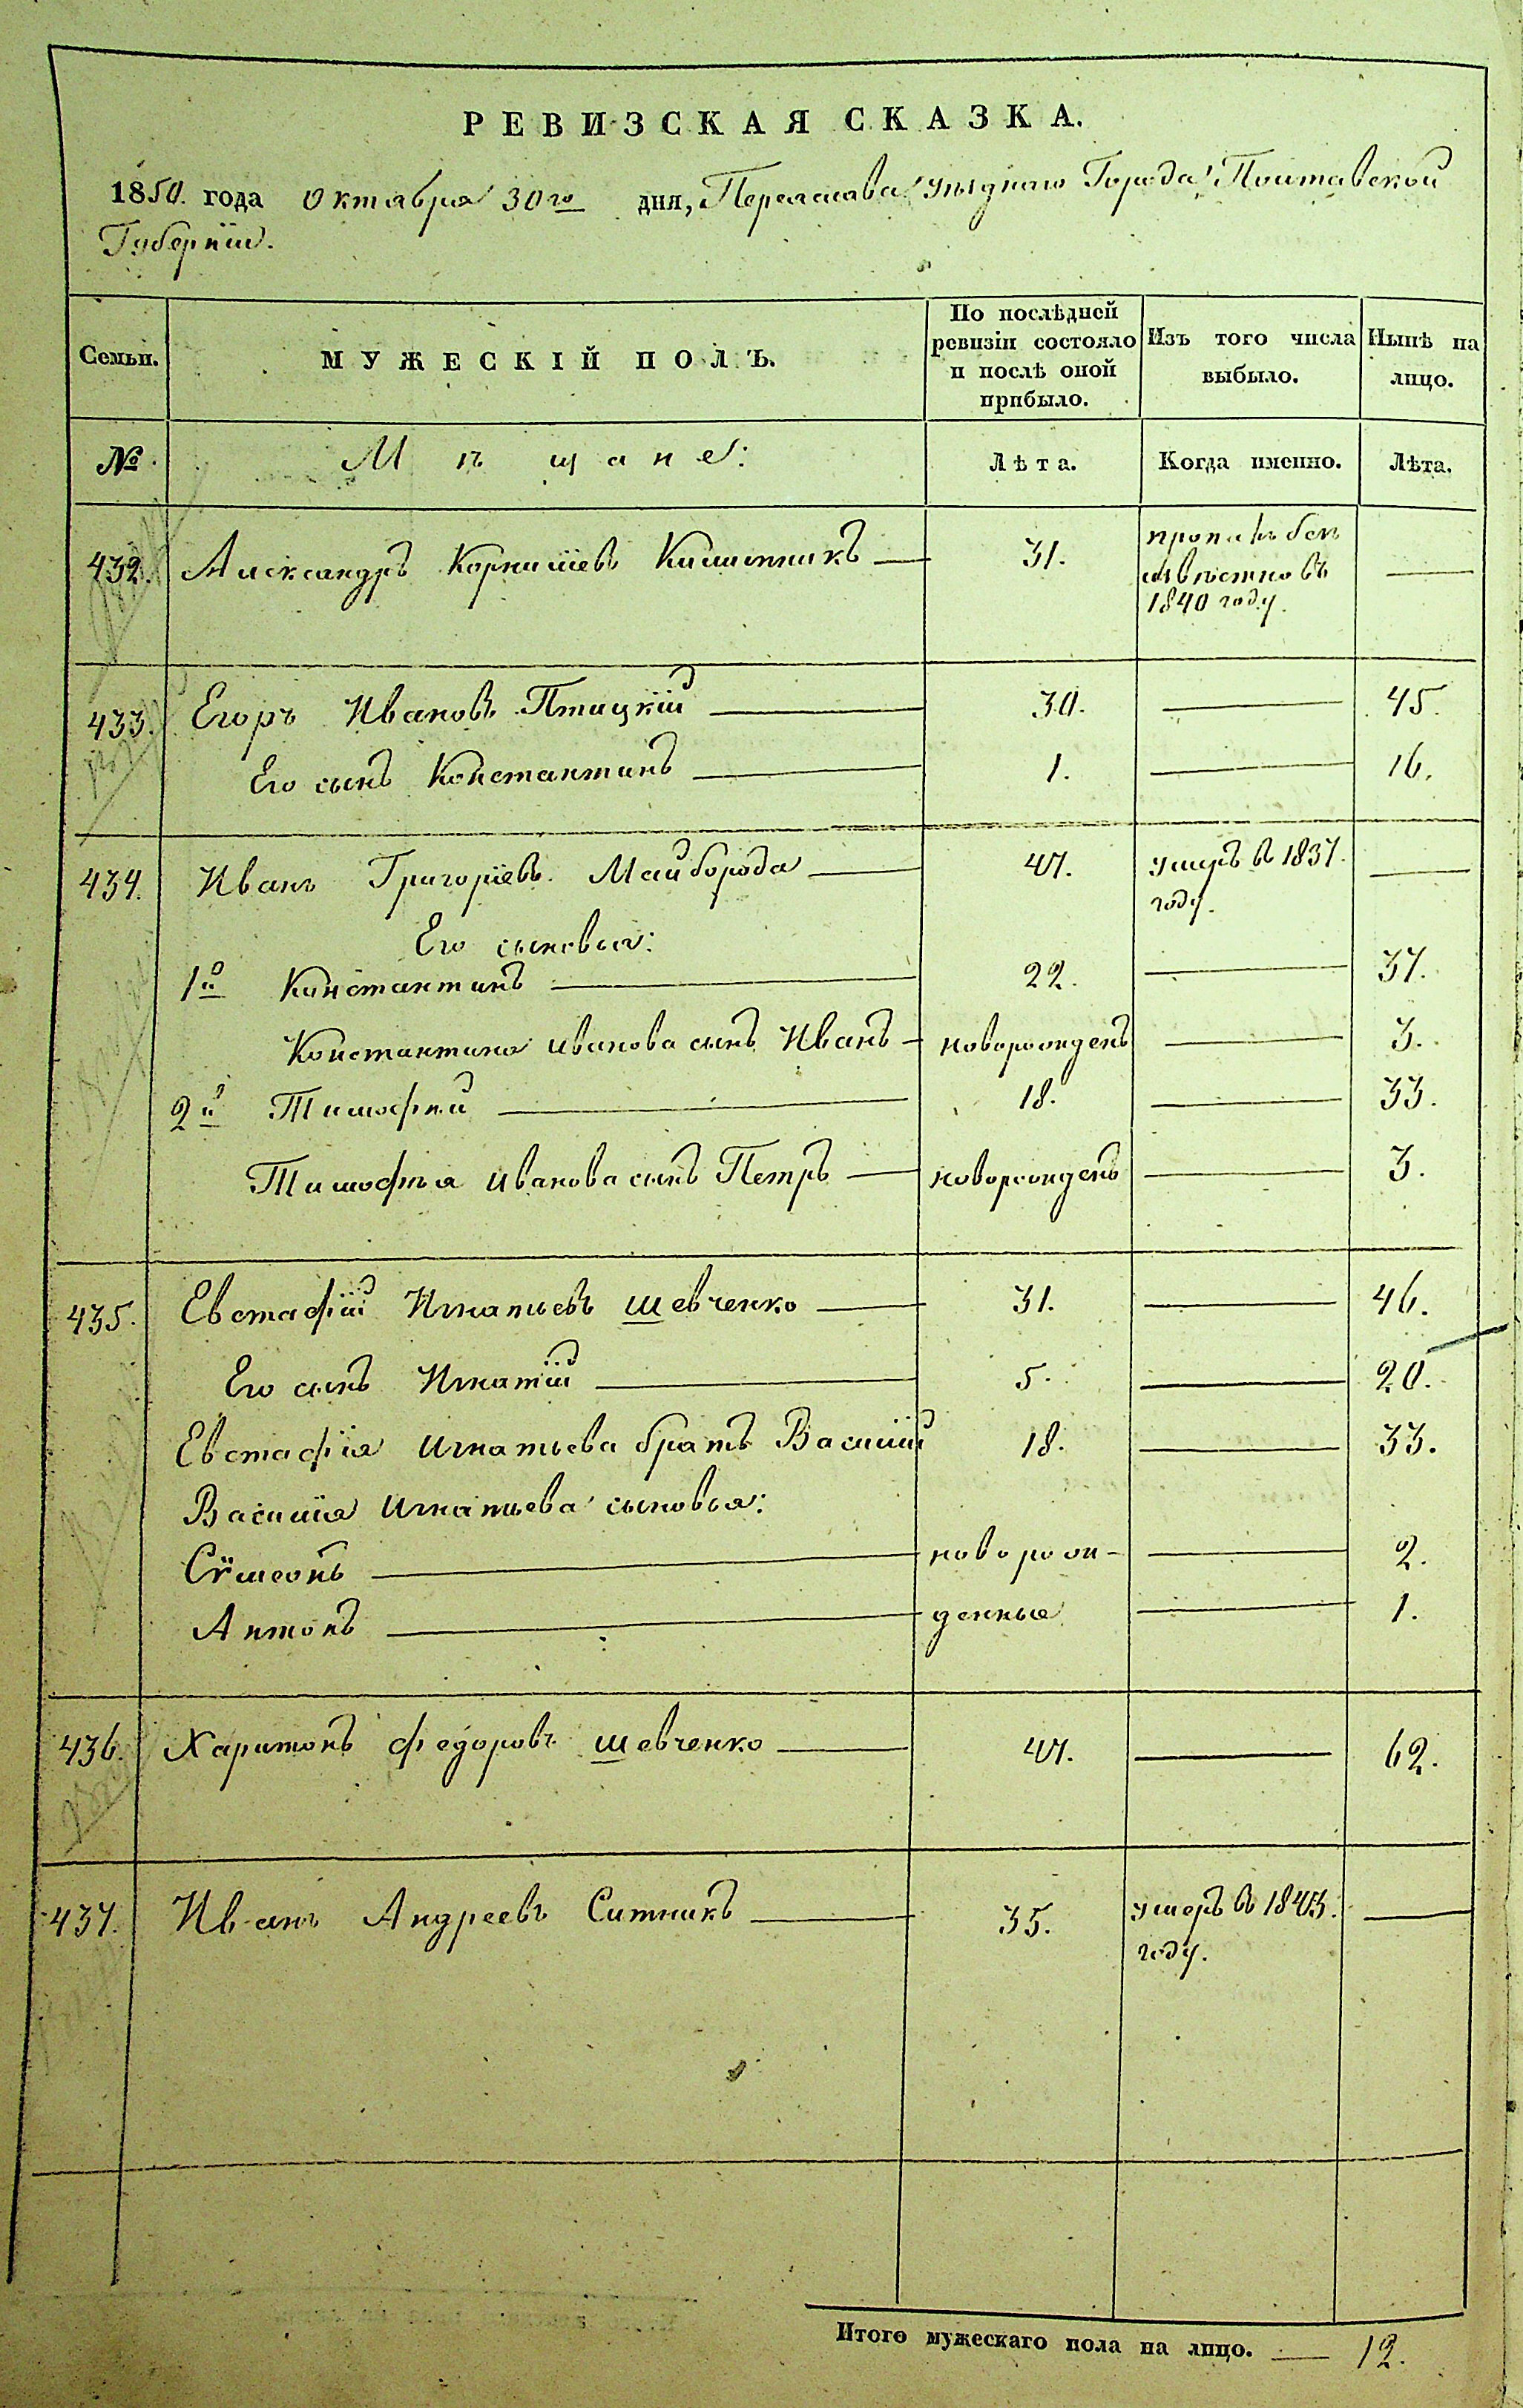 РЕВИЗСКАЯ СКАЗКА.
1850. года Октября 30го дня, Переяслава Уѣзднаго Города Полтавской
Губерніи.
Семьи.
МУЖЕСКІЙ ПОЛЪ.
По послѣдней
ревизіи состояло
и послѣ оной
прибыло.
Изъ того числа
выбыло.
Нынѣ на
лицо.
№
Мѣщане:
Лѣта.
Когда именно.
Лѣта.
432. Александръ Корнилїевъ 31. пропалъ без
извѣстно въ
1840 году.
433. Егоръ Ивановъ Птицкїй 30. 45.
Его сынъ Константинъ 1. 16.
434. Иванъ Григорїевъ Майборода 47. умеръ в 1837.
году.
Его сыновья:
1й Константинъ 22. 37.
Константина Иванова сынъ Иванъ новорожденъ 3.
2й Тимофѣй 18. 33.
Тимофѣя Иванова сынъ Петръ новорожденъ 3.
435. Евстафїй Игнатьевъ Шевченко 31. 46.
Его сынъ Игнатїй 5. 20.
Евстафїя Игнатьева братъ Василїй 18. 33.
Василїя Игнатьева сыновья:
Сѵмеонъ новорож- 2.
Антонъ денные 1.
436. Харитонъ Федоровъ Шевченко 47. 62.
437. Иванъ Андреевъ Ситникъ 35. умеръ в 1843.
году.
Итого мужескаго пола на лицо. 12.